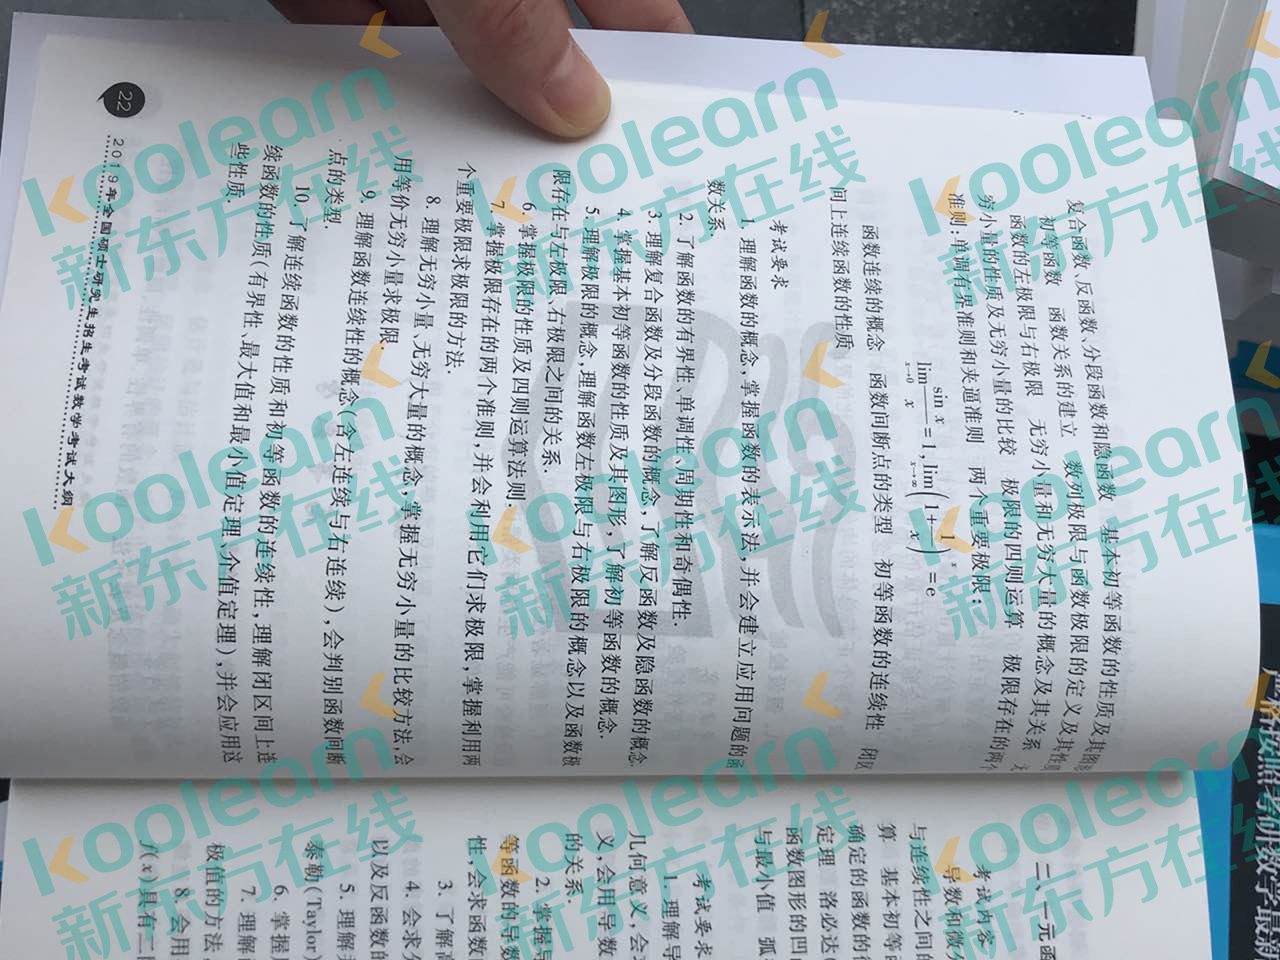 复合函数、反函数、分段函数和隐函数 基本初等函数的性质及其图形
初等函数 函数关系的建立 数列极限与函数极限的定义及其性质
函数的左极限与右极限 无穷小量和无穷大量的概念及其关系 无
穷小量的性质及无穷小量的比较 极限的四则运算 极限存在的两个
准则:单调有界准则和夹逼准则 两个重要极限:
lim x→0 sin x / x = 1, lim x→∞ (1+1/x)^x = e
函数连续的概念 函数间断点的类型 初等函数的连续性 闭区
间上连续函数的性质
考试要求
1. 理解函数的概念,掌握函数的表示法,并会建立应用问题的函
数关系.
2. 了解函数的有界性、单调性、周期性和奇偶性.
3. 理解复合函数及分段函数的概念,了解反函数及隐函数的概念.
4. 掌握基本初等函数的性质及其图形,了解初等函数的概念.
5. 理解极限的概念,理解函数左极限与右极限的概念以及函数极
限存在与左极限、右极限之间的关系.
6. 掌握极限的性质及四则运算法则.
7. 掌握极限存在的两个准则,并会利用它们求极限,掌握利用两
个重要极限求极限的方法.
8. 理解无穷小量、无穷大量的概念,掌握无穷小量的比较方法,会
用等价无穷小量求极限.
9. 理解函数连续性的概念(含左连续与右连续),会判别函数间断
点的类型.
10. 了解连续函数的性质和初等函数的连续性,理解闭区间上连
续函数的性质(有界性、最大值和最小值定理、介值定理),并会应用这
些性质.
22
2019年全国硕士研究生招生考试数学考试大纲
二、一元函
考试内容
导数和微分
与连续性之间的
算 基本初等函
确定的函数的微
定理 洛必达(
函数图形的凹凸
与最小值 弧
考试要求
1. 理解导
几何意义,会求
义,会用导数
的关系.
2. 掌握导
等函数的导数
性,会求函数
3. 了解高
4. 会求分
以及反函数的
5. 理解并
泰勒(Taylor)
6. 掌握用
7. 理解函
极值的方法,
8. 会用
f(x)具有二
koolearn
新东方在线
koolearn
新东方在线
koolearn
新东方在线
koolearn
新东方在线
koolearn
新东方在线
koolearn
新东方在线
koolearn
新东方在线
koolearn
新东方在线
koolearn
新东方在线